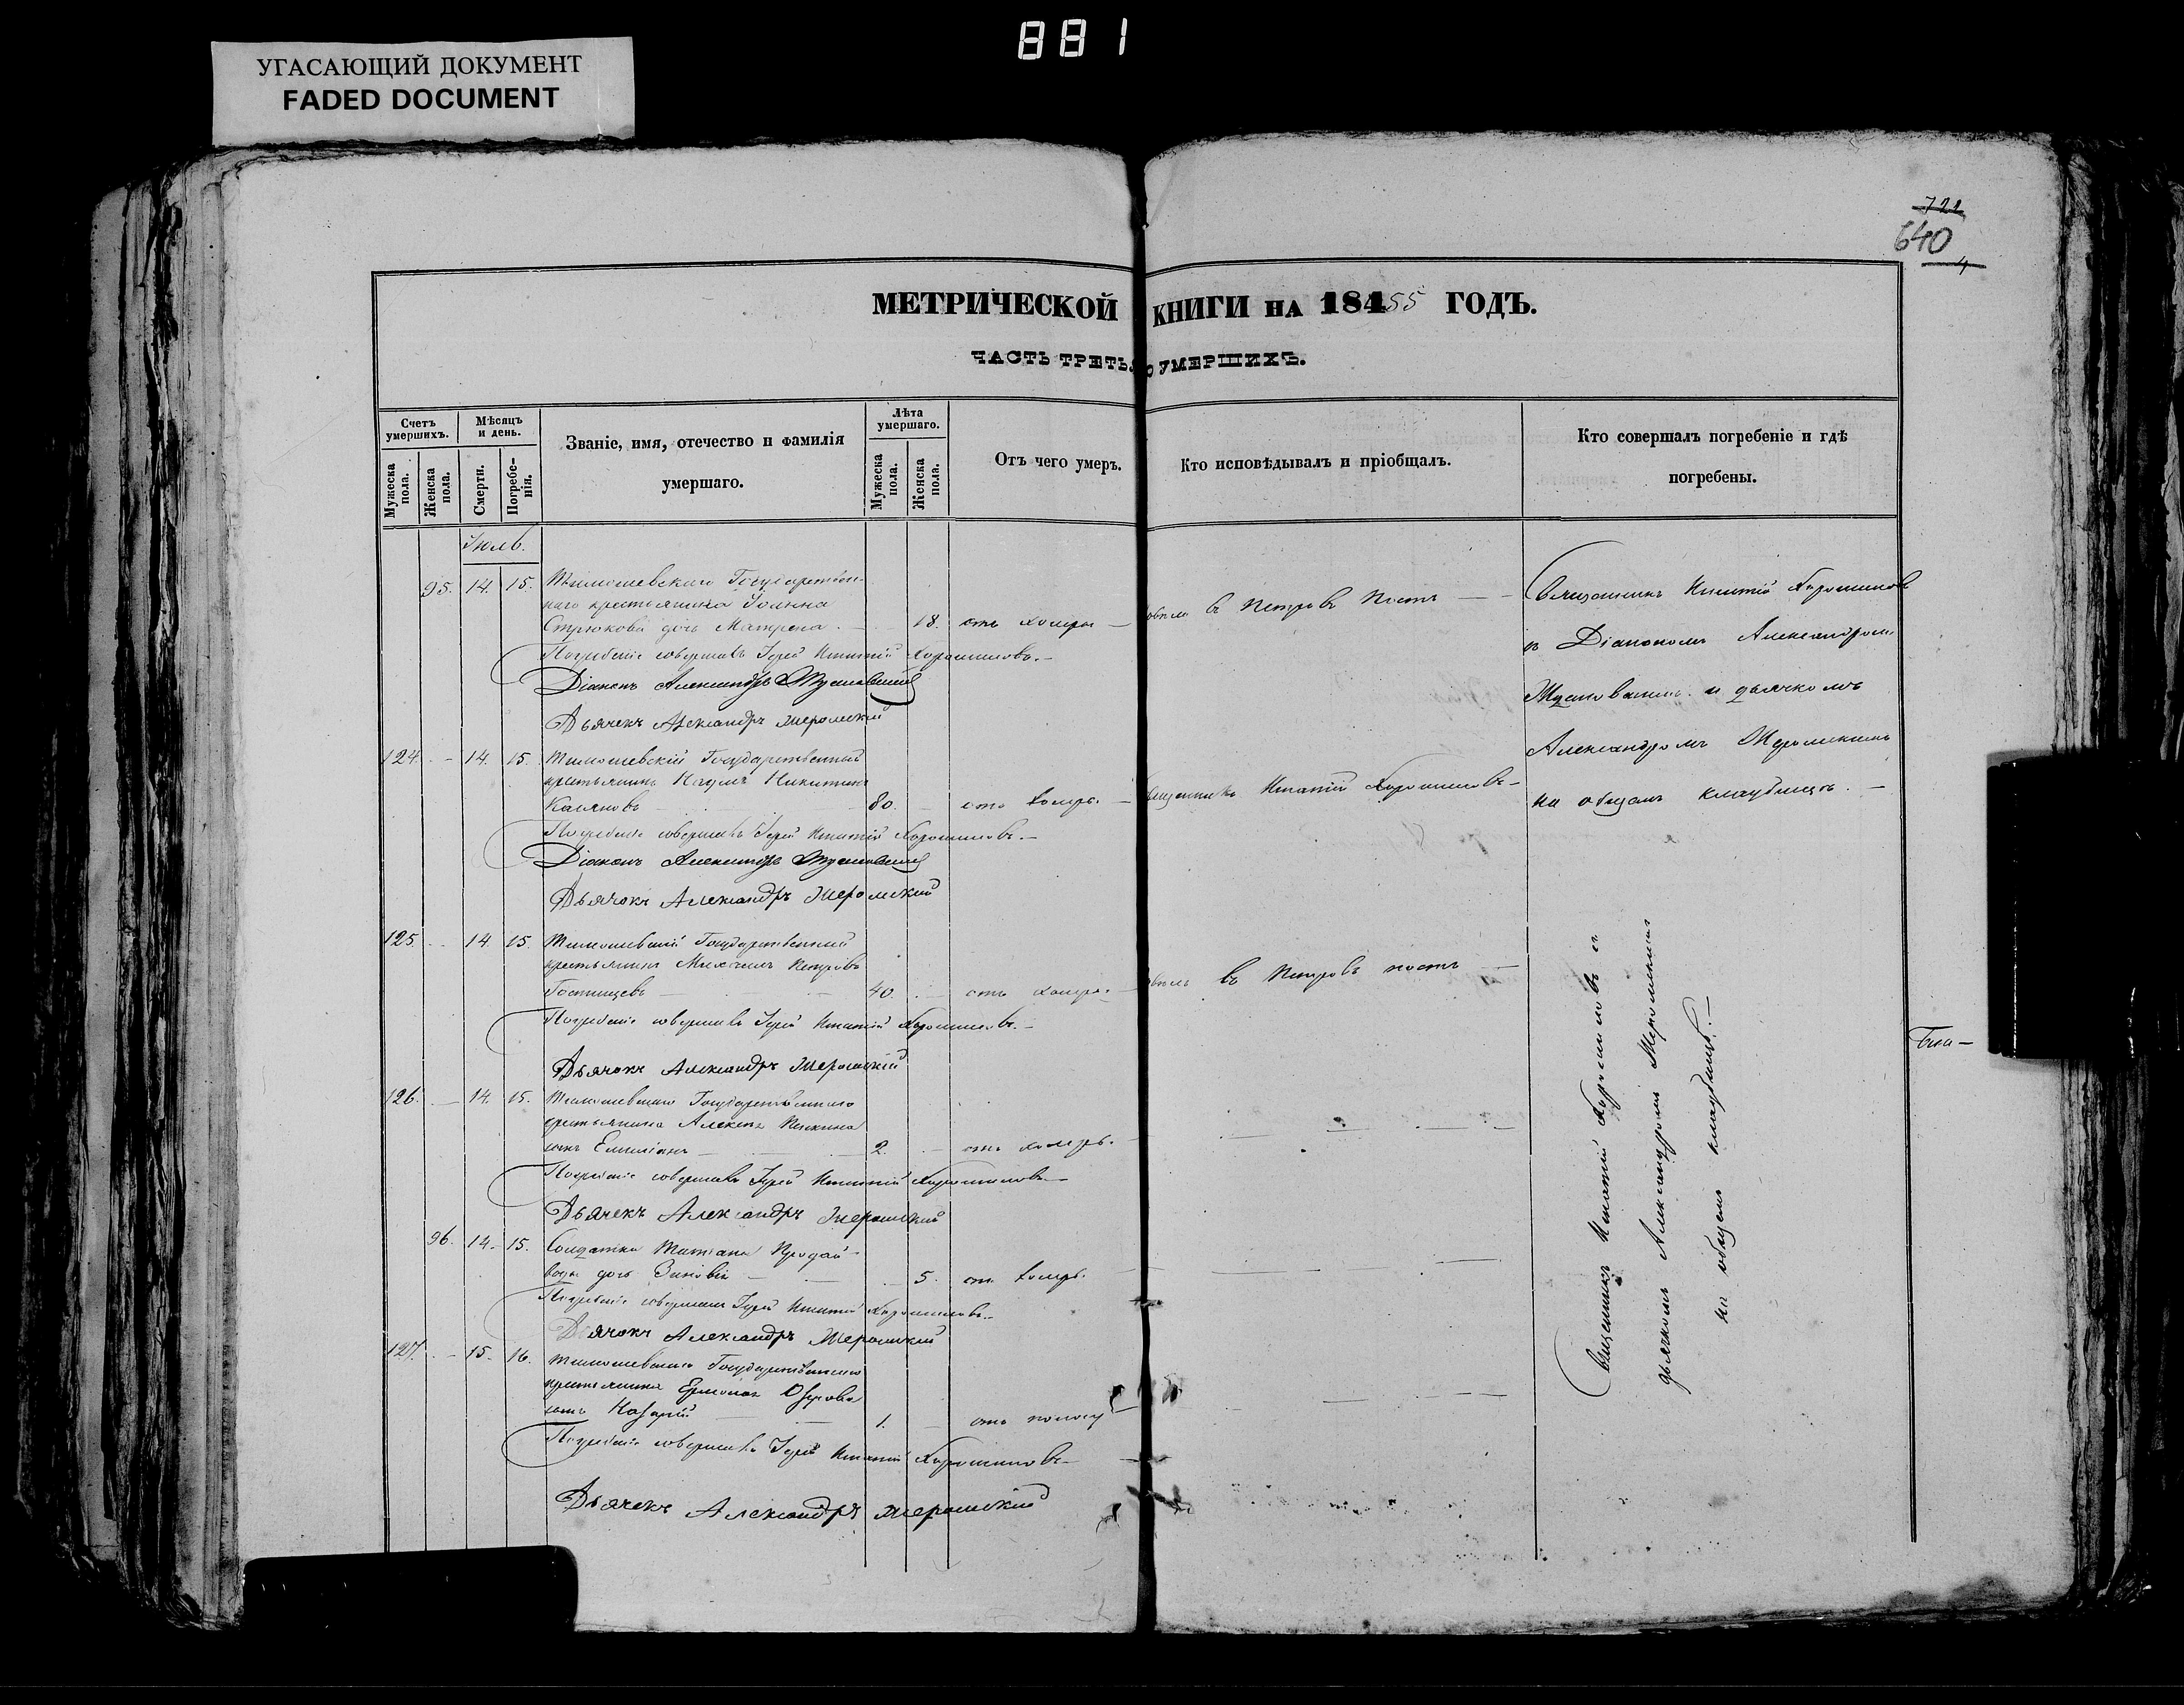 881
УГАСАЮЩИЙ ДОКУМЕНТ
FADED DOCUMENT
721
640
МЕТРИЧЕСКОЙ КНИГИ НА 18455 ГОДЪ.
ЧАСТЬ ТРЕТЬЯ О УМЕРШИХЪ.
Счетъ умершихъ.
Мужеска пола.
Женска пола.
Мѣсяцъ и день.
Смерти.
Погребенія.
Званіе, имя, отечество и фамилія
умершаго.
Лѣта умершаго.
Мужеска пола.
Женска пола.
Отъ чего умеръ.
Кто исповѣдывалъ и пріобщалъ.
Кто совершалъ погребеніе и гдѣ
погребены.
Іюль.
95. 14. 15. Тимошевскаго Государствен-
наго крестьянина Іоанна
Стрюкова дочь Матрена 18. отъ холеры въ Петровъ постъ
Погребеніе совершалъ Іерей Игнатій Хорошиловъ.
Діаконъ Александръ
Дьячекъ Александръ Жеромскій
124. 14. 15. Тимошевскій Государственный
крестьянинъ Наумъ Никитинъ
80. отъ холеры Священникъ Игнатій Хорошиловъ
Погребеніе совершалъ Іерей Игнатій Хорошиловъ.
Діаконъ Александръ
Дьячокъ Александръ Жеромскій
125. 14. 15. Тимошевскій Государственный
крестьянинъ Михаилъ Петровъ
Гостищевъ 40. отъ холеры въ Петровъ постъ
Погребеніе совершалъ Іерей Игнатій Хорошиловъ.
Дьячокъ Александръ Жеромскій
126. 14. 15. Тимошевскаго Государственнаго
крестьянина Алексѣя
сынъ Емиліанъ 2. отъ холеры.
Погребеніе совершалъ Іерей Игнатій Хорошиловъ
Дьячекъ Александръ Жеромскій
96. 14. 15. Солдатки Татіаны Продай-
воды дочь Зиновія 5. отъ холеры.
Погребеніе совершалъ Іерей Игнатій Хорошиловъ.
Дьячокъ Александръ Жеромскій
127. 15. 16. Тимошевскаго Государственнаго
крестьянина Ермолая Озерова
сынъ Назарій 1. отъ поносу
Погребеніе совершалъ Іерей Игнатій Хорошиловъ
Дьячекъ Александръ Жеромскій
Священникъ Игнатій Хорошиловъ
съ Діакономъ Александромъ
и дьячкомъ
Александромъ Жеромскимъ
на общемъ кладбищѣ.
Священникъ Игнатій Хорошиловъ съ
дьячкомъ Александромъ Жеромскимъ
на общемъ кладбищѣ.